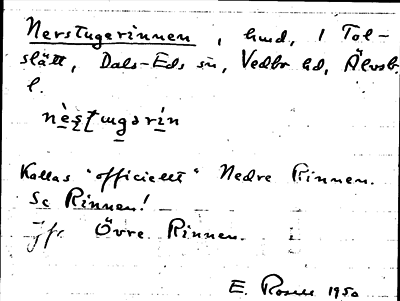 Nerstugerinnen, hmd, i Töl-
slätt, Dals-Eds sn, Vedbo hd, Älvsb.
l.
nèstugərin
Kallas "officiellt" Nedre Rinnen.
Se Rinnen!
jfr Övre Rinnen.
E. Rosell 1950